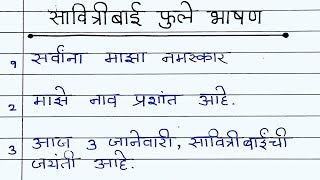 सावित्रीबाई फुले भाषण
१ सर्वांना माझा नमस्कार
2 माझे नाव प्रशांत आहे.
3 आज 3 जानेवारी, सावित्रीबाईची
जयंती आहे.